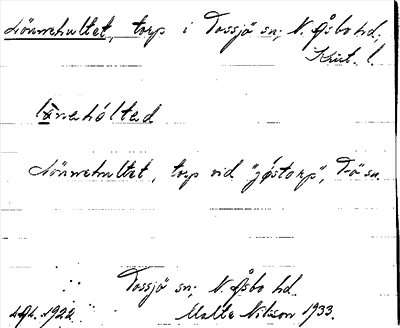 Lönnehultet, torp i Tossjö sn; N. Åsbo hd;
Krist. l.
lönehölted
Lönnehultet, torp vid "jöstorp", T-ö sn.
Tossjö sn; N. Åsbo hd.
1922 Malte Nilsson 1933.